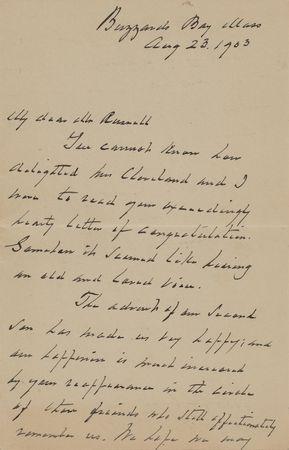 Buzzards Bay Mass
Aug 23. 1903
My dear Mr Russell
You cannot know how
delighted Mrs Cleveland and I
were to read your exceedingly
hearty letter of congratulation.
Somehow it seemed like hearing
an old and loved voice.
The advent of our second
son has made us very happy; and
our happiness is much increased
by your reappearance in the circle
of those friends who still affectionately
remember us. We hope we may